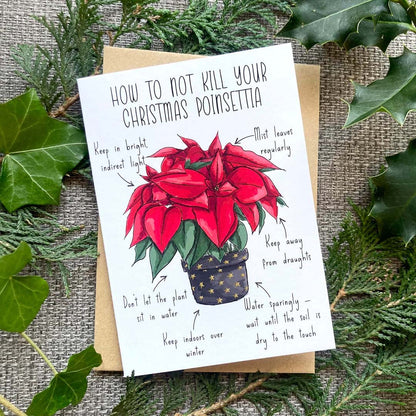 HOW TO NOT KILL YOUR
CHRISTMAS POINSETTIA
Keep in bright
indirect light
Mist leaves
regularly
Keep away
from draughts
Don't let the plant
sit in water
Water sparingly –
wait until the soil is
dry to the touch
Keep indoors over
winter